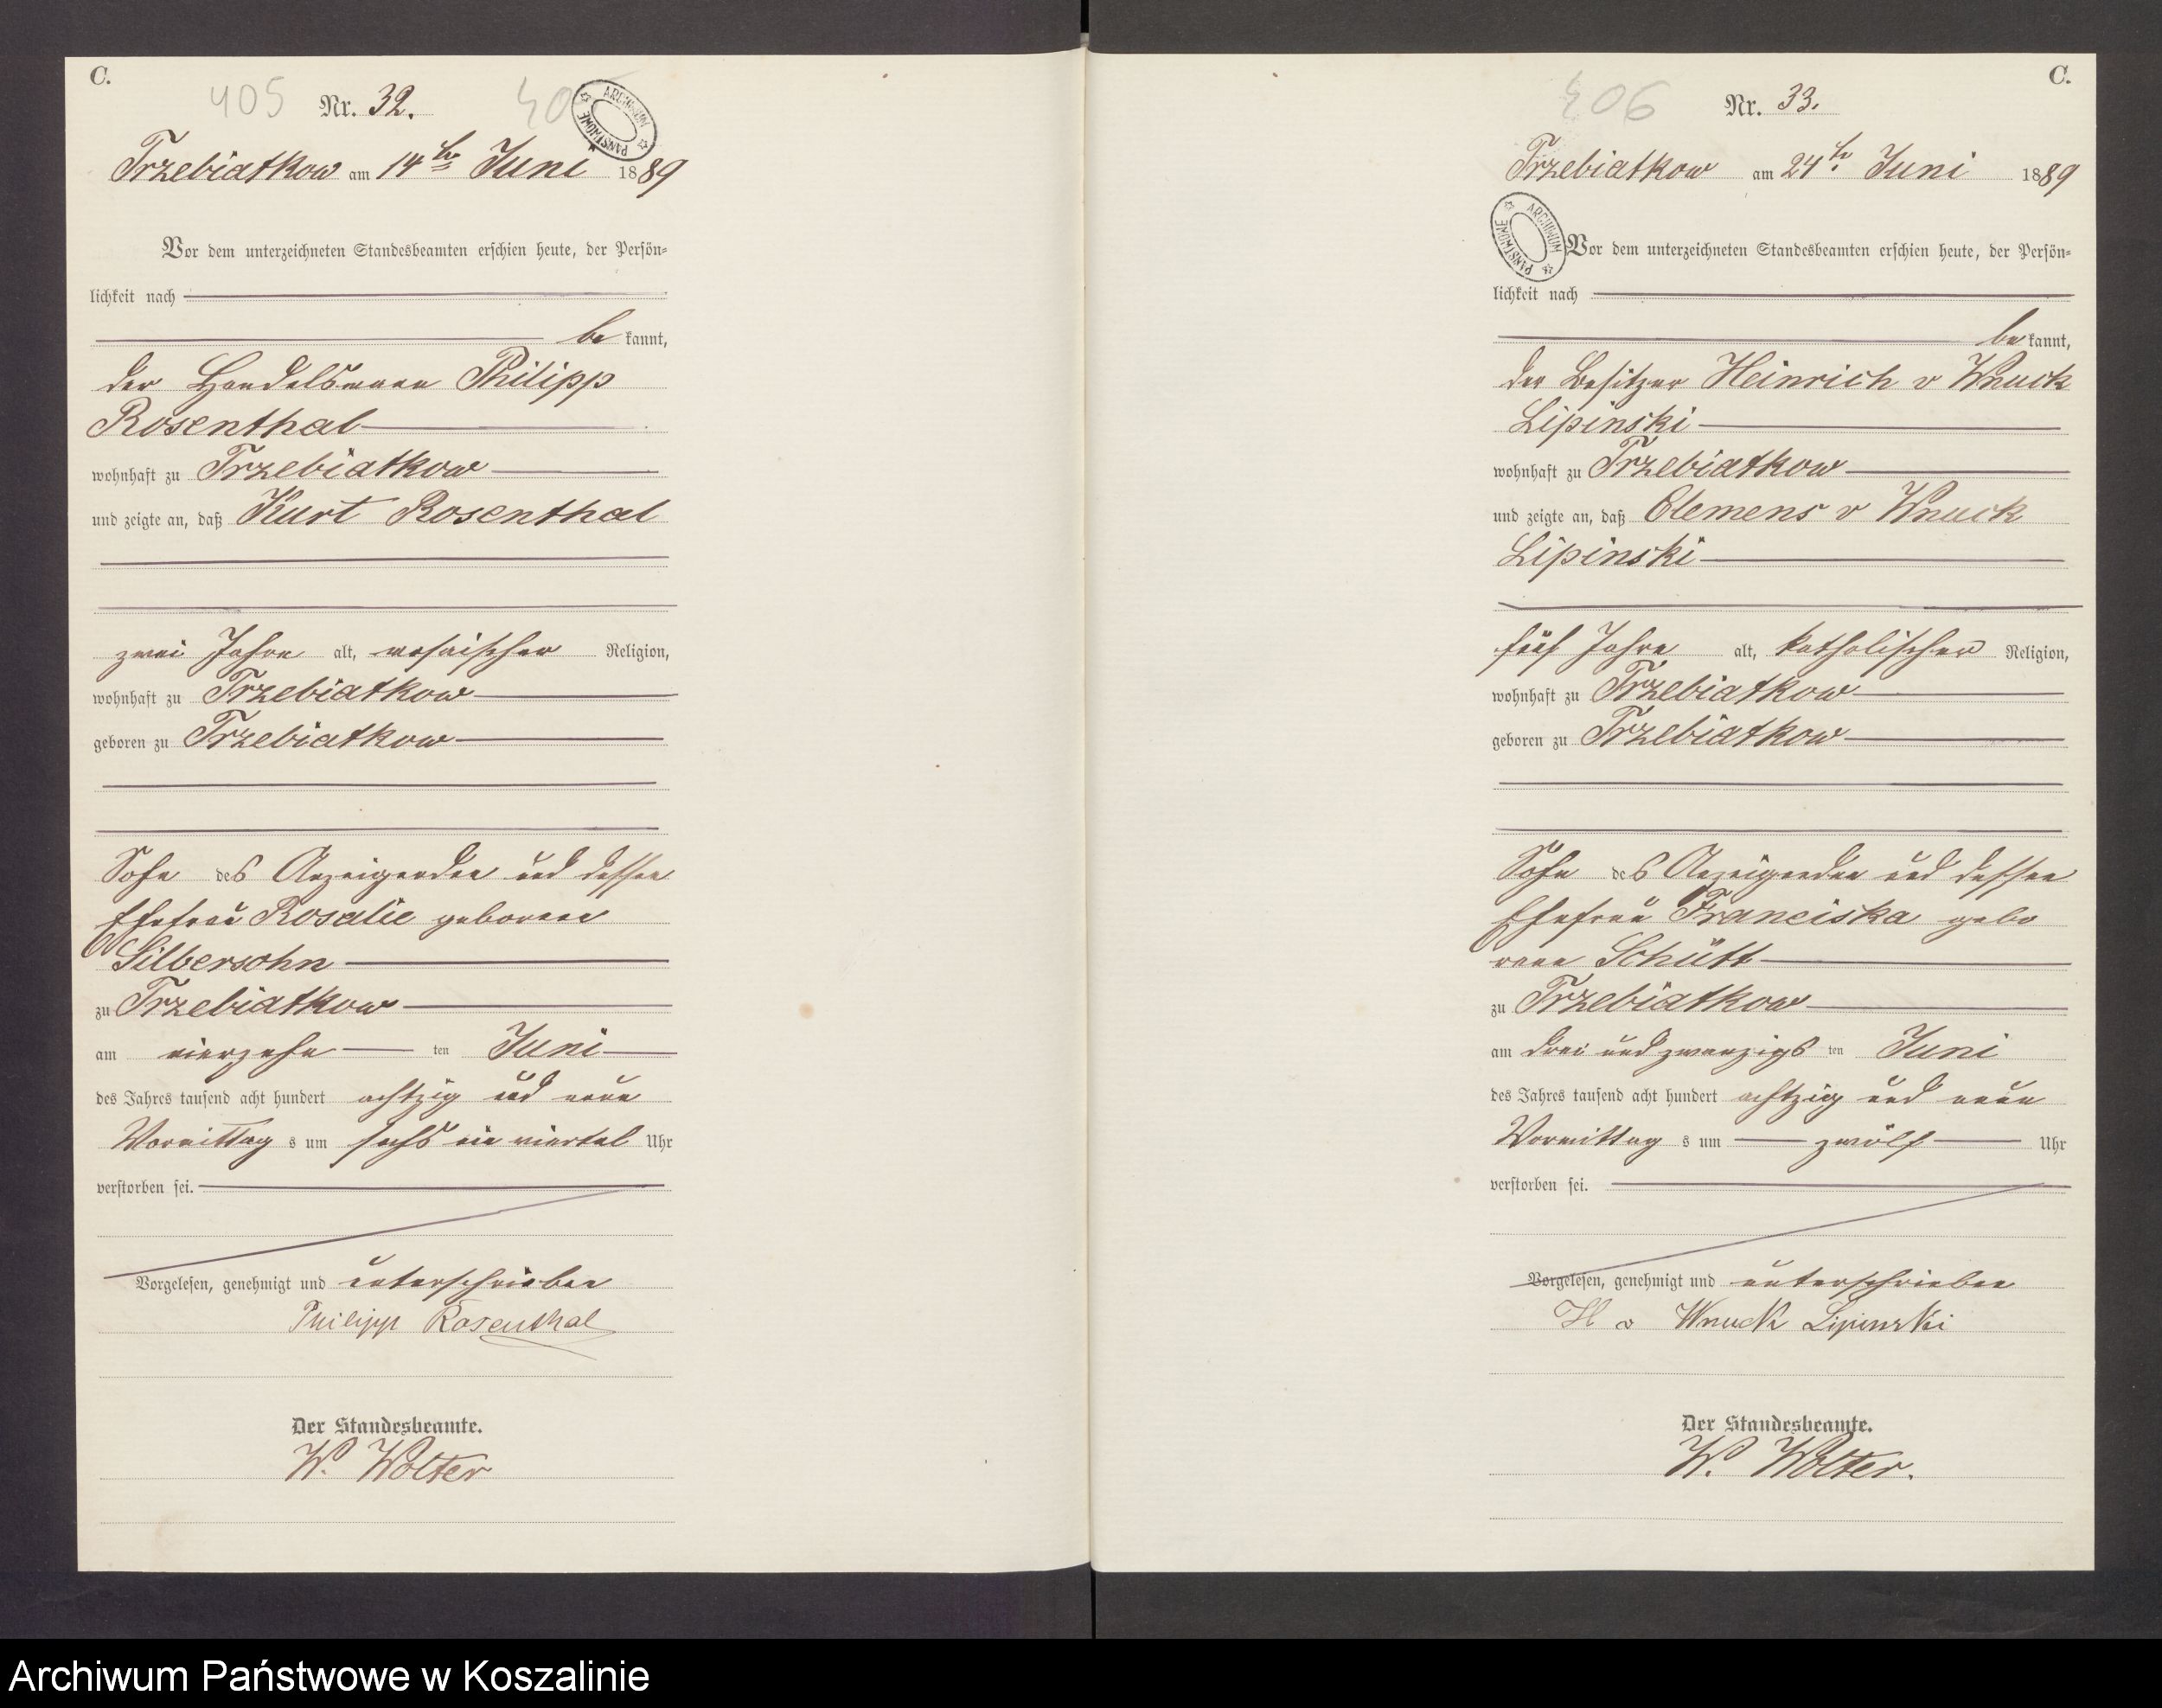 C.
405
Nr. 32.
40
ARCHIWUM PAŃSTWOWE
Trzebiatkow am 14ten Juni 1889
Vor dem unterzeichneten Standesbeamten erschien heute, der Persön-
lichkeit nach
be kannt,
der Handelsmann Philipp
Rosenthal
wohnhaft zu Trzebiatkow
und zeigte an, daß Kurt Rosenthal
zwei Jahre alt, mosaischer Religion,
wohnhaft zu Trzebiatkow
geboren zu Trzebiatkow
Sohn des Anzeigenden und dessen
Ehefrau Rosalie geborene
Silbersohn
zu Trzebiatkow
am vierzehn ten Juni
des Jahres tausend acht hundert achtzig und neun
Vormittag s um sechs ein viertel Uhr
verstorben sei.
Vorgelesen, genehmigt und unterschrieben
Philipp Rosenthal
Der Standesbeamte.
W. Wolter
C.
406
Nr. 33.
Trzebiatkow am 24t. Juni 1889
ARCHIWUM PAŃSTWOWE
Vor dem unterzeichneten Standesbeamten erschien heute, der Persön-
lichkeit nach
be kannt,
der Besitzer Heinrich v Wnuck
Lipinski
wohnhaft zu Trzebiatkow
und zeigte an, daß Clemens v Wnuck
Lipinski
fünf Jahre alt, katholischer Religion,
wohnhaft zu Trzebiatkow
geboren zu Trzebiatkow
Sohn des Anzeigenden und dessen
Ehefrau Franciska gebo
rene Schütt
zu Trzebiatkow
am drei und zwanzigs ten Juni
des Jahres tausend acht hundert achtzig und neun
Vormittag s um zwölf Uhr
verstorben sei.
Vorgelesen, genehmigt und unterschrieben
H v Wnuck Lipinski
Der Standesbeamte.
W. Wolter.
Archiwum Państwowe w Koszalinie